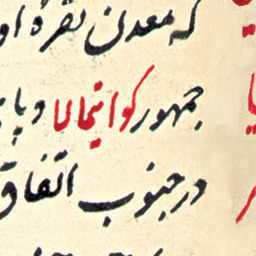 که معدن نقرهٔ او
جمهور کواتیمالا و پا
در جنوب اتفاق